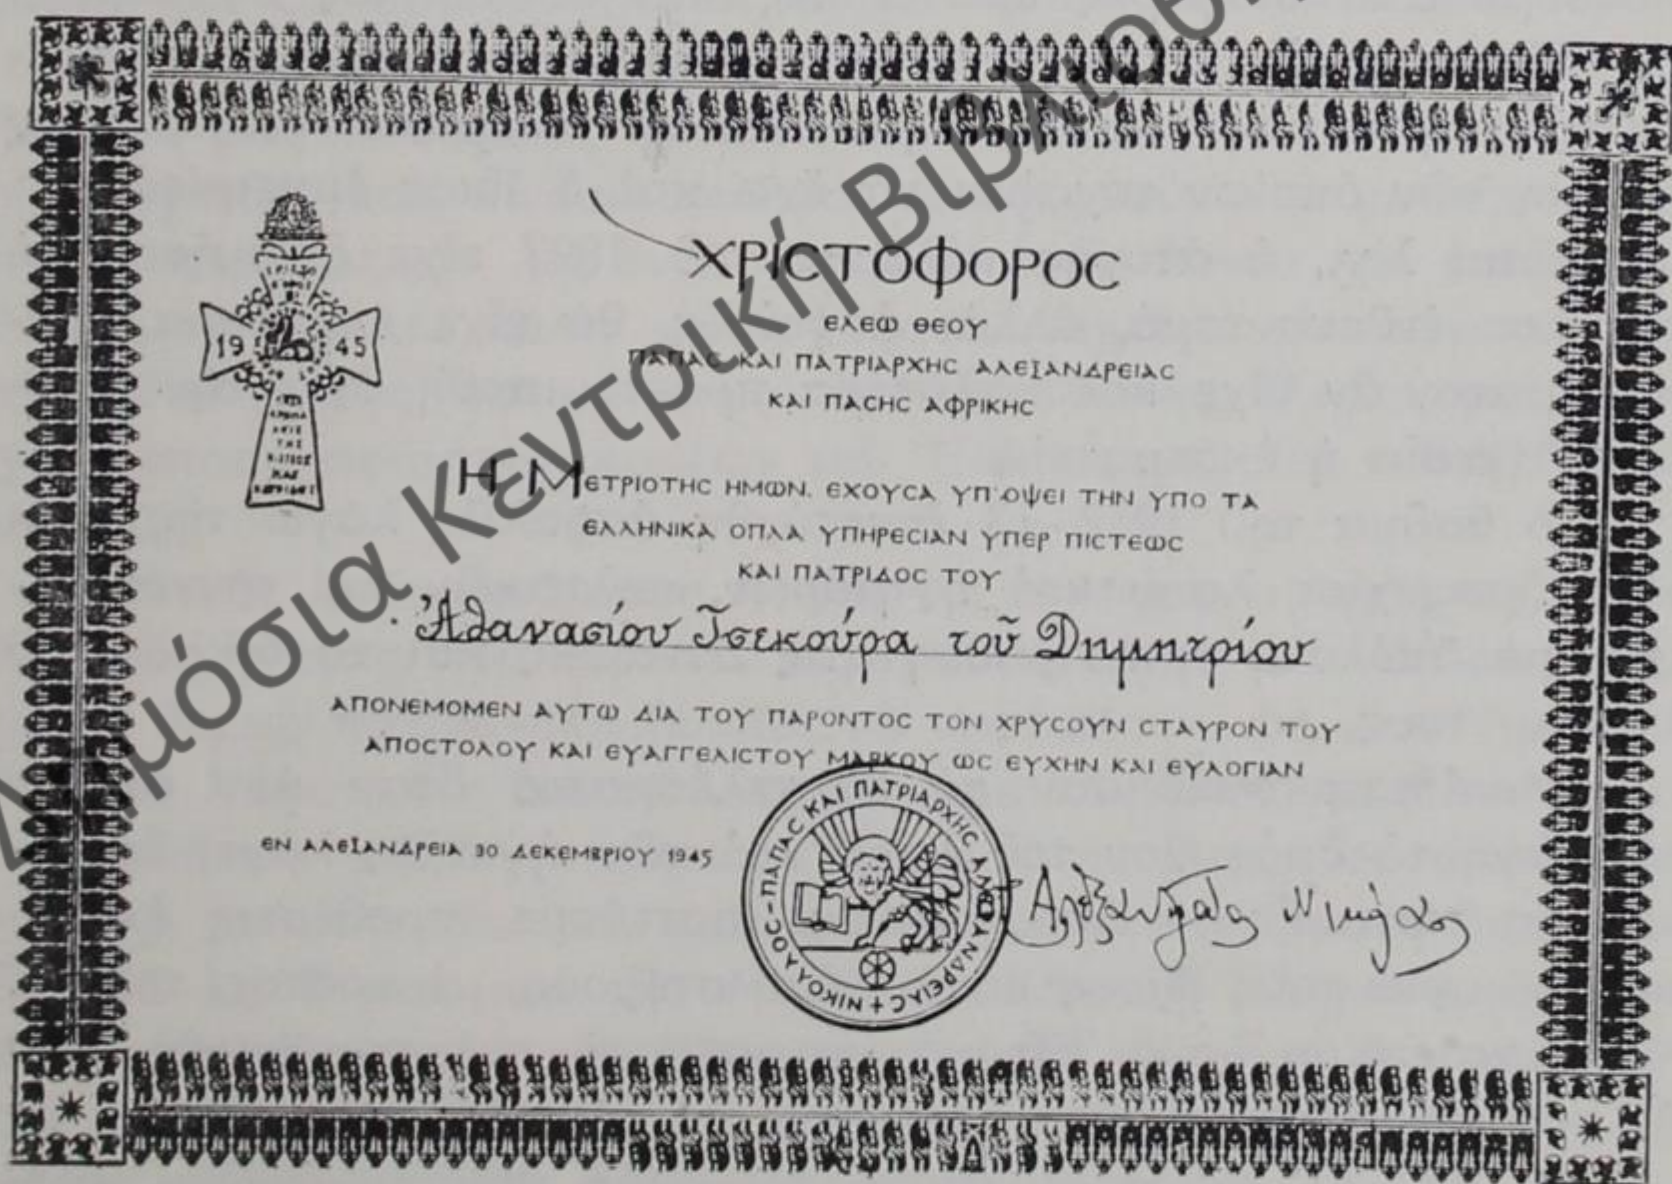 Δημόσια Κεντρική Βιβλιοθ
1945
ΧΡΙСΤΟΦΟΡΟС
ΕΛΕΩ ΘΕΟΥ
ΠΑΠΑС ΚΑΙ ΠΑΤΡΙΑΡΧΗС ΑΛΕΞΑΝΔΡΕΙΑС
ΚΑΙ ΠΑСΗС ΑΦΡΙΚΗС
Η ΜΕΤΡΙΟΤΗС ΗΜΩΝ. ΕΧΟΥСΑ ΥΠ'ΟΨΕΙ ΤΗΝ ΥΠΟ ΤΑ
ΕΛΛΗΝΙΚΑ ΟΠΛΑ ΥΠΗΡΕСΙΑΝ ΥΠΕΡ ΠΙСΤΕΩС
ΚΑΙ ΠΑΤΡΙΔΟС ΤΟΥ
Ἀθανασίου Τσεκούρα τοῦ Δημητρίου
ΑΠΟΝΕΜΟΜΕΝ ΑΥΤΩ ΔΙΑ ΤΟΥ ΠΑΡΟΝΤΟС ΤΟΝ ΧΡΥСΟΥΝ СΤΑΥΡΟΝ ΤΟΥ
ΑΠΟСΤΟΛΟΥ ΚΑΙ ΕΥΑΓΓΕΛΙСΤΟΥ ΜΑΡΚΟΥ ΩС ΕΥΧΗΝ ΚΑΙ ΕΥΛΟΓΙΑΝ
ΕΝ ΑΛΕΞΑΝΔΡΕΙΑ 30 ΔΕΚΕΜΒΡΙΟΥ 1945
+ΝΙΚΟΛΑΟС-ΠΑΠΑС ΚΑΙ ΠΑΤΡΙΑΡΧΗС ΑΛΕΞΑΝΔΡΕΙΑС
Ἀλεξανδρείας Νικόλαος